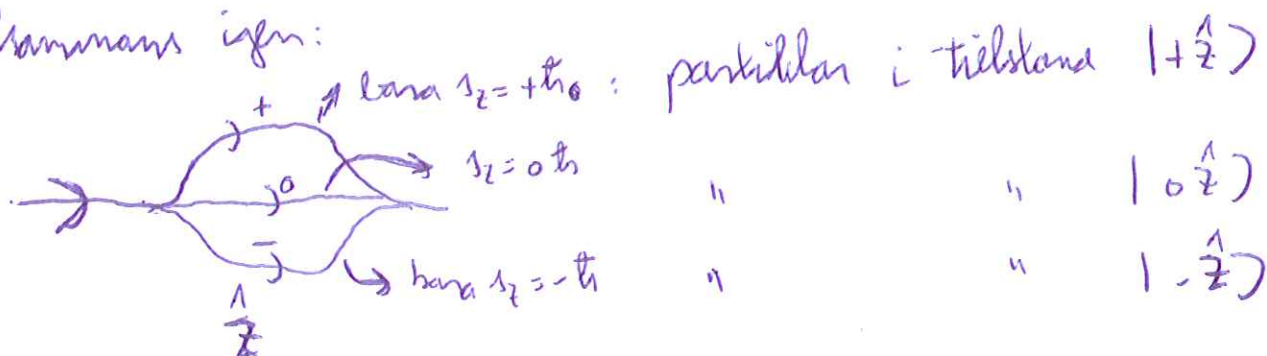 sammans igen:
+ bara s_z = +ħ : partiklar i tillstånd |+ẑ⟩
0 s_z = 0ħ " " |0ẑ⟩
− bara s_z = −ħ " " |−ẑ⟩
ẑ